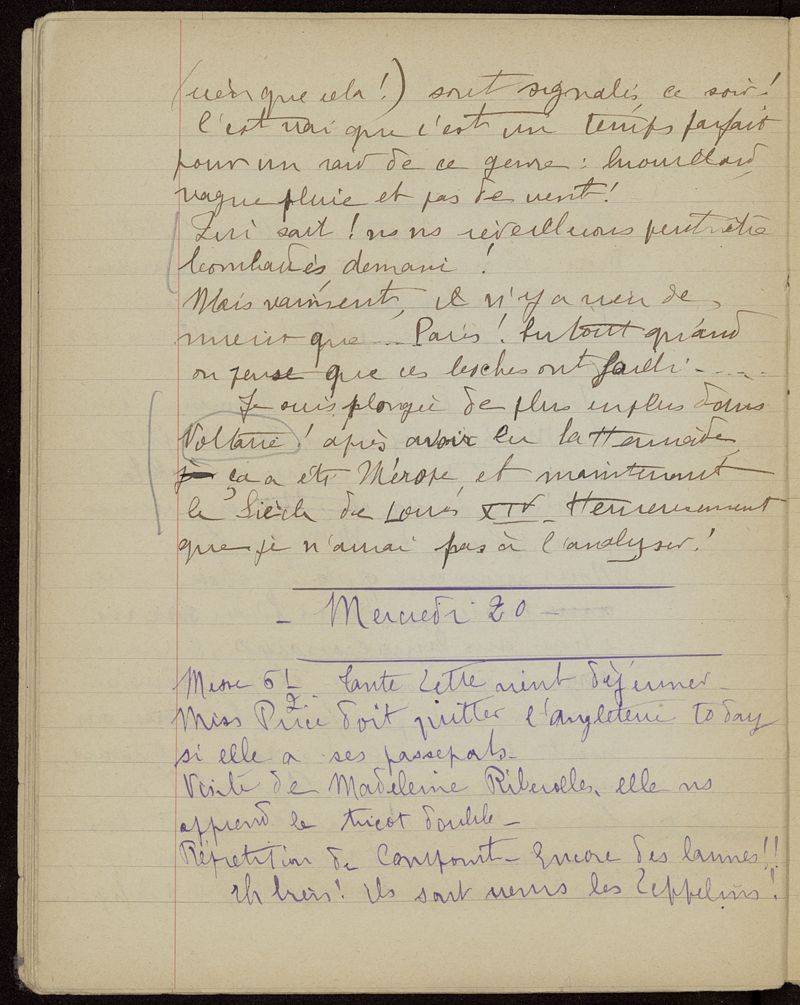 (rien que cela!) sont signalés, ce soir!
C'est vrai que c'est un temps parfait
pour un raid de ce genre : brouillard,
vague pluie et pas de vent!
Qui sait! ns ns réveillerons peut-être
bombardés, demain!
Mais vraiment, il n'y a rien de
mieux que... Paris! Surtout quand
on pense que ces boches ont failli.....
Je suis plongée de plus en plus dans
Voltaire! après avoir lu la Henriade,
ça a été Mérope et maintenant
le Siècle de Louis XIV. Heureusement
que je n'aurai pas à l'analyser!
- Mercredi 20 -
Messe 6 1/2. Tante Lette vient déjeuner -
Miss Price doit quitter l'angleterre to day
si elle a ses passeports -
Visite de Madeleine Riberolles, elle ns
apprend le tricot double -
Répétition de Compoint - Encore des larmes!!
Eh bien! Ils sont venus les Zeppelins!